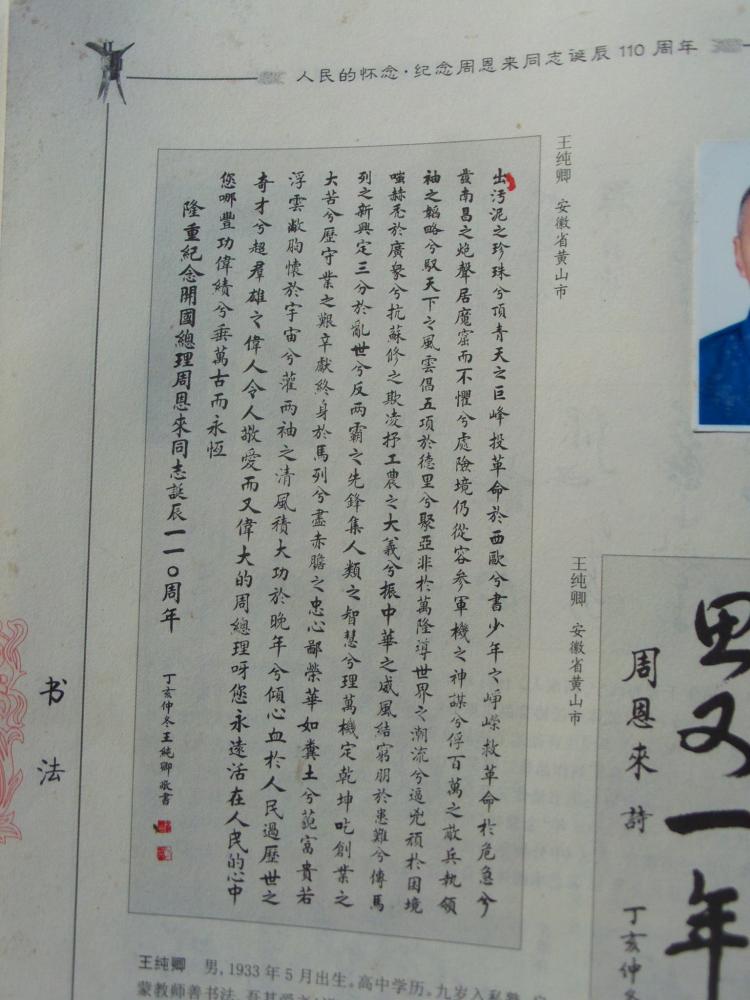 人民的怀念·纪念周恩来同志诞辰110周年
王纯卿 安徽省黄山市
出污泥之珍珠兮頂青天之巨峰投革命於西歐兮書少年之崢嶸救革命於危急兮
發南昌之炮聲居魔窟而不懼兮處險境仍從容参軍機之神謀兮俘百萬之敵兵執領
袖之韜略兮馭天下之風雲倡五項於德里兮聚亞非於萬隆導世界之潮流兮逼兇頑於困境
嗤赫禿於廣衆兮抗蘇修之欺凌抒工農之大義兮振中華之威風結窮朋於患難兮傳馬
列之新興定三分於亂世兮反两霸之先鋒集人類之智慧兮理萬機定乾坤吃創業之
大苦兮歷守業之艱辛獻終身於馬列兮盡赤膽之忠心鄙榮華如糞土兮藐富貴若
浮雲敞胸懷於宇宙兮灌两袖之清風積大功於晚年兮傾心血於人民過歷世之
奇才兮超羣雄之偉人令人敬愛而又偉大的周總理呀您永遠活在人民的心中
您哪豐功偉績兮垂萬古而永恆
隆重紀念開國總理周恩來同志誕辰一一〇周年
丁亥仲冬王純卿敬書
王纯卿 安徽省黄山市
又一年
周恩來詩
丁亥仲冬
书法
王纯卿 男,1933年5月出生。高中学历。九岁入私塾,
蒙教师善书法